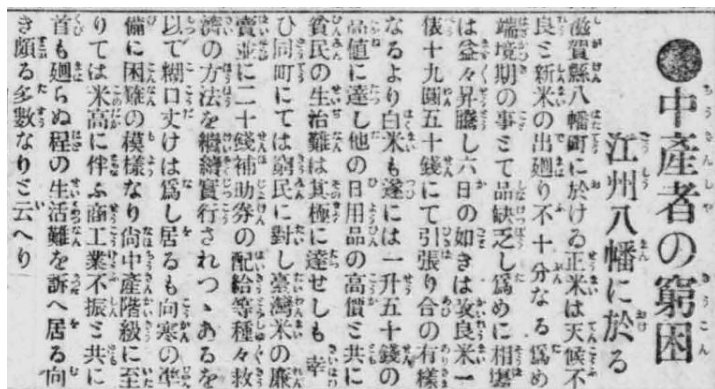 ●中產者の窮困
江州八幡に於る
滋賀縣八幡町に於ける正米は天候不
良と新米の出廻り不十分なる爲め
端境期の事とて品缺乏し爲めに相塲
は益々昇騰し六日の如きは攻良米一
俵十九圓五十錢にて引張り合の有樣
なるより白米も遂には一升五十錢の
高値に達し他の日用品の高價と共に
貧民の生治難は其極に達せしも 幸
ひ同町にては窮民に對し臺灣米の廉
賣並に二十錢補助劵の配給等種々救
濟の方法を繼續實行されつゝあるを
以て糊口丈けは爲し居るも向寒の準
備に困難の模樣なり尙中產階級に至
りては米高に伴ふ商工業不振と共に
首も廻らぬ程の生活難を訴へ居る向
き頗る多數なりと云へり